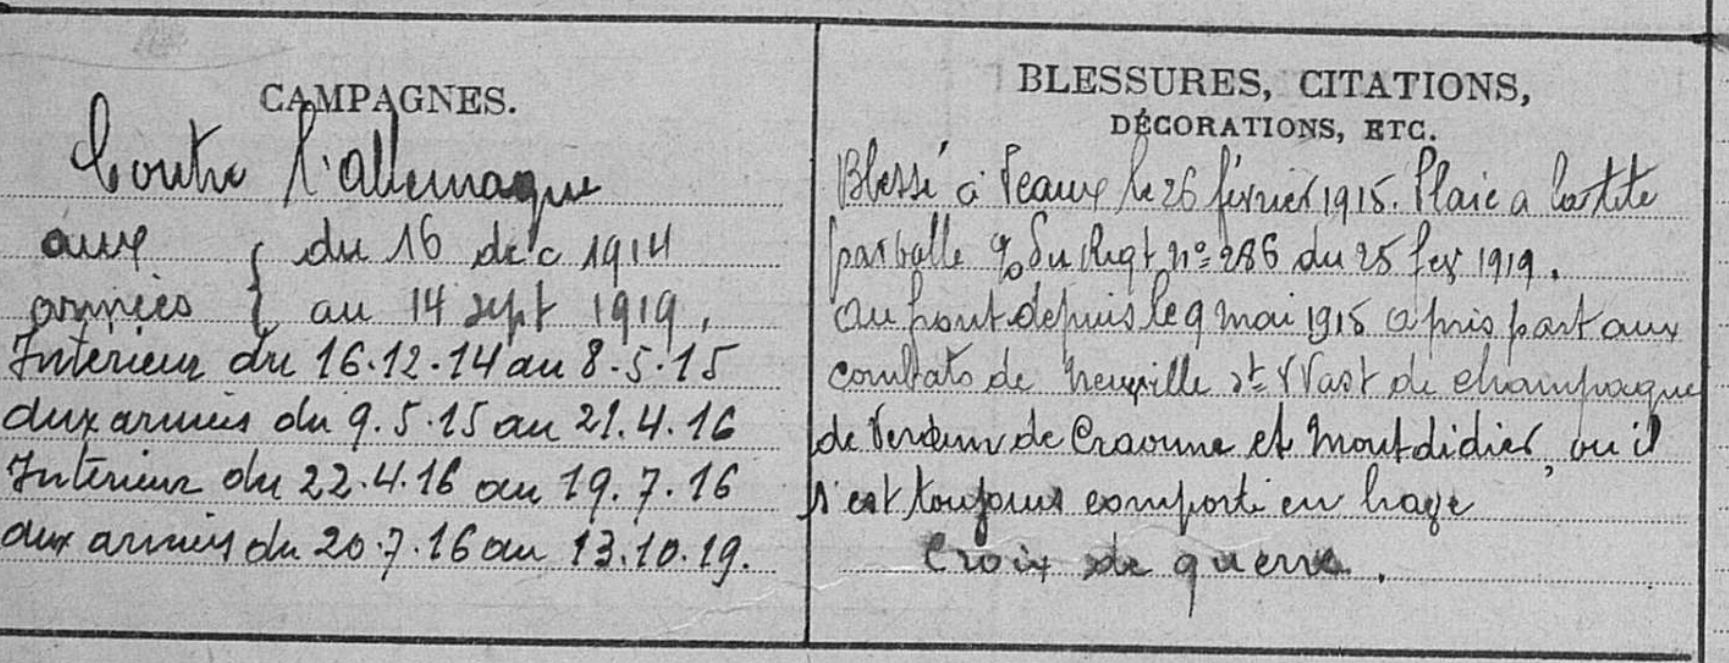 CAMPAGNES.
Contre l'Allemagne
aux { du 16 déc 1914
armées { au 14 sept 1919.
Intérieur du 16.12.14 au 8.5.15
aux armées du 9.5.15 au 21.4.16
Intérieur du 22.4.16 au 19.7.16
aux armées du 20.7.16 au 13.10.19.
BLESSURES, CITATIONS,
DÉCORATIONS, ETC.
Blessé à le 26 février 1915. Plaie a la tete
par balle du Regt n° 286 du 25 fev 1919.
Au front depuis le 9 mai 1915 a pris part aux
combats de Neuville St Waast de champagne
de Verdun de Craonne et Montdidier, ou il
s'est toujours comporté en brave
Croix de guerre.